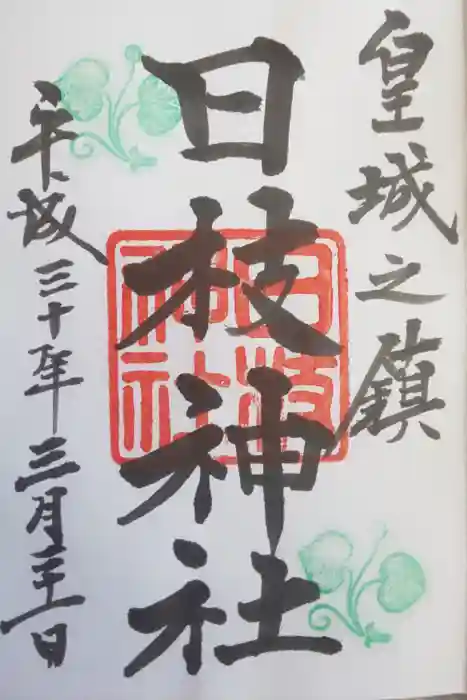 皇城之鎮
日枝神社
日枝神社
平成三十年三月二十一日